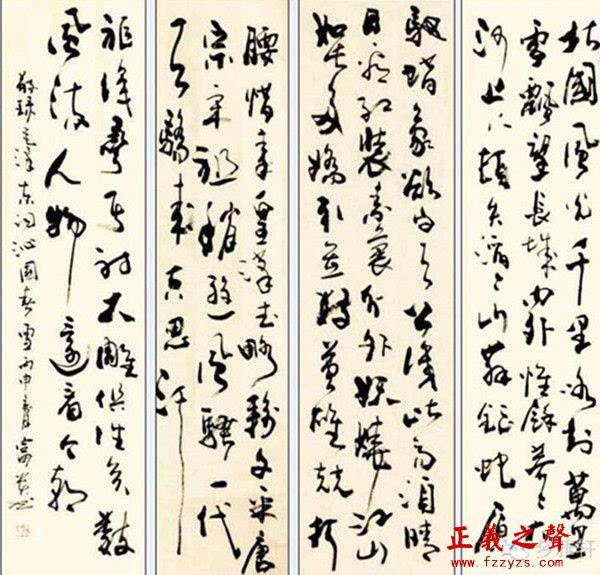 北國風光千里冰封萬里
雪飄望長城内外惟餘莽莽大
河上下頓失滔滔山舞銀蛇原
馳蜡象欲与天公試比高須晴
日看紅裝素裹分外妖嬈江山
如此多嬌引無數英雄競折
腰惜秦皇漢武略輸文采唐
宗宋祖稍遜風騷一代
天驕成吉思汗
祗識彎弓射大雕俱往矣數
風流人物還看今朝
敬録毛澤東詞沁園春雪丙申
正義之聲
www.fzzyzs.com